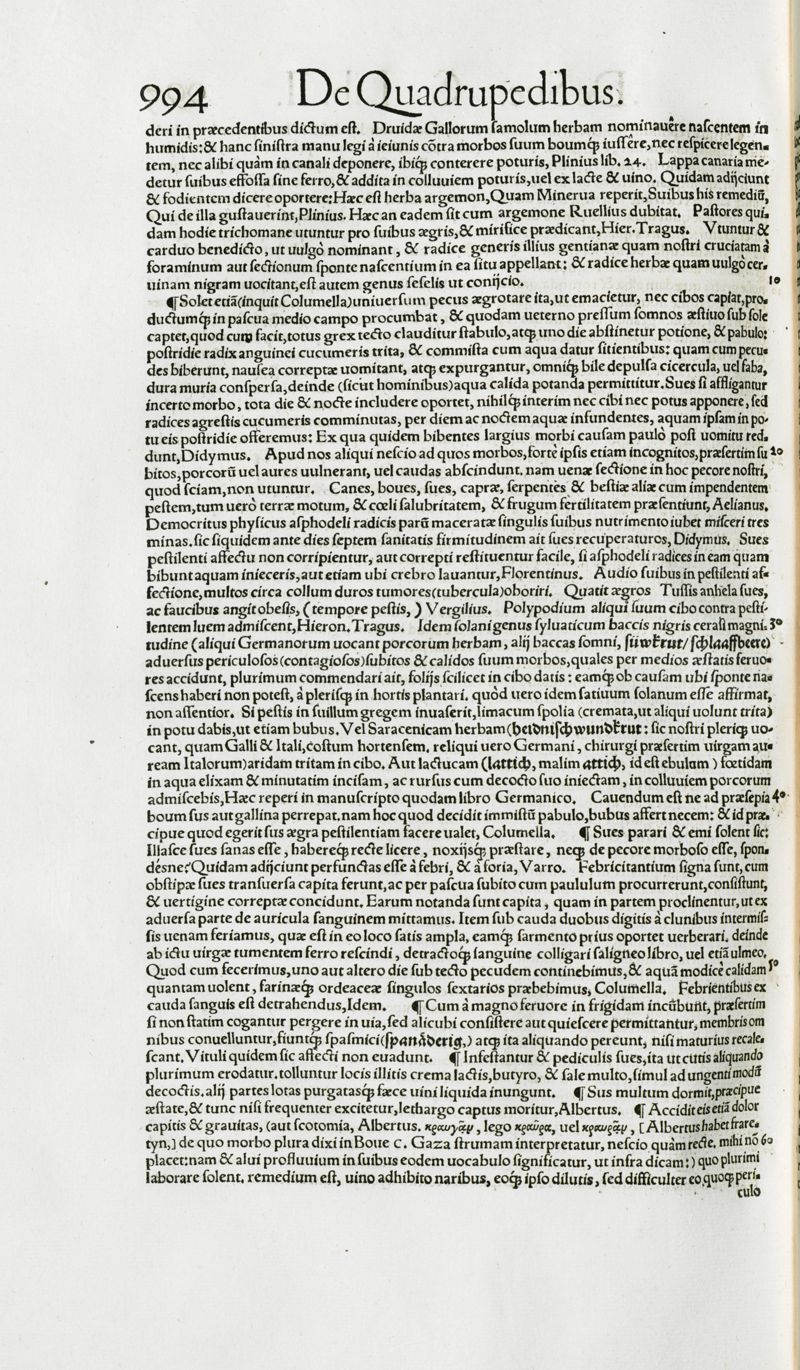 994 De Quadrupedibus.
deri in præcedentibus dictum est. Druidæ Gallorum samolum herbam nominauêre nascentem in
humidis: & hanc sinistra manu legi à ieiunis cōtra morbos suum boumq́; iussêre, nec respicere legen-
tem, nec alibi quàm in canali deponere, ibiq́; conterere poturis, Plinius lib. 24. Lappa canaria me-
detur suibus effossa sine ferro, & addita in colluuiem poturis, uel ex lacte & uino. Quidam adijciunt
& fodientem dicere oportere: Hæc est herba argemon, Quam Minerua reperit, Suibus his remediū,
Qui de illa gustauerint, Plinius. Hæc an eadem sit cum argemone Ruellius dubitat. Pastores qui-
dam hodie trichomane utuntur pro suibus ægris, & mirifice prædicant, Hier. Tragus. Vtuntur &
carduo benedicto, ut uulgò nominant, & radice generis illius gentianæ quam nostri cruciatam à
foraminum aut sectionum sponte nascentium in ea situ appellant: & radice herbæ quam uulgò cer-
uinam nigram uocitant, est autem genus seselis ut conijcio. 10
¶ Solet etiā (inquit Columella) uniuersum pecus ægrotare ita, ut emacietur, nec cibos capiat, pro-
ductumq́; in pascua medio campo procumbat, & quodam ueterno pressum somnos æstiuo sub sole
captet, quod cum facit, totus grex tecto clauditur stabulo, atq́; uno die abstinetur potione, & pabulo:
postridie radix anguinei cucumeris trita, & commista cum aqua datur sitientibus: quam cum pecu-
des biberunt, nausea correptæ uomitant, atq́; expurgantur, omniq́; bile depulsa cicercula, uel faba,
dura muria conspersa, deinde (sicut hominibus) aqua calida potanda permittitur. Sues si affligantur
incerto morbo, tota die & nocte includere oportet, nihilq́; interim nec cibi nec potus apponere, sed
radices agrestis cucumeris comminutas, per diem ac noctem aquæ infundentes, aquam ipsam in po-
tu eis postridie offeremus: Ex qua quidem bibentes largius morbi causam paulò post uomitu red-
dunt, Didymus. Apud nos aliqui nescio ad quos morbos, fortè ipsis etiam incognitos, præsertim su 20
bitos, porcorū uel aures uulnerant, uel caudas abscindunt. nam uenæ sectione in hoc pecore nostri,
quod sciam, non utuntur. Canes, boues, sues, capræ, serpentes & bestiæ aliæ cum impendentem
pestem, tum uerò terræ motum, & cœli salubritatem, & frugum fertilitatem præsentiunt, Aelianus.
Democritus physicus asphodeli radicis parū maceratæ singulis suibus nutrimento iubet misceri tres
minas. sic siquidem ante dies septem sanitatis firmitudinem ait sues recuperaturos, Didymus. Sues
pestilenti affectu non corripientur, aut correpti restituentur facile, si asphodeli radices in eam quam
bibunt aquam inieceris, aut etiam ubi crebro lauantur, Florentinus. Audio suibus in pestilenti af-
fectione, multos circa collum duros tumores (tubercula) oboriri. Quatit ægros Tussis anhela sues,
ac faucibus angit obesis, (tempore pestis,) Vergilius. Polypodium aliqui suum cibo contra pesti-
lentem luem admiscent, Hieron. Tragus. Idem solani genus syluaticum baccis nigris cerasi magni- 30
tudine (aliqui Germanorum uocant porcorum herbam, alij baccas somni, süwkrut/ schlaaffbeere)
aduersus periculosos (contagiosos) subitos & calidos suum morbos, quales per medios æstatis feruo-
res accidunt, plurimum commendari ait, folijs scilicet in cibo datis: eamq́; ob causam ubi sponte na-
scens haberi non potest, à plerisq́; in hortis plantari. quòd uero idem satiuum solanum esse affirmat,
non assentior. Si pestis in suillum gregem inuaserit, limacum spolia (cremata, ut aliqui uolunt trita)
in potu dabis, ut etiam bubus. Vel Saracenicam herbam (heidnischwundkrut: sic nostri pleriq́; uo-
cant, quam Galli & Itali, costum hortensem. reliqui uero Germani, chirurgi præsertim uirgam au-
ream Italorum) aridam tritam in cibo. Aut lactucam (lattich, malim attich, id est ebulum) fœtidam
in aqua elixam & minutatim incisam, ac rursus cum decocto suo iniectam, in colluuiem porcorum
admiscebis, Hæc reperi in manuscripto quodam libro Germanico. Cauendum est ne ad præsepia 40
boum sus aut gallina perrepat. nam hoc quod decidit immistū pabulo, bubus affert necem: & id præ-
cipue quod egerit sus ægra pestilentiam facere ualet, Columella. ¶ Sues parari & emi solent sic:
Illasce sues sanas esse, habereq́; recte licere, noxijsq́; præstare, neq́; de pecore morboso esse, spon-
désne? Quidam adijciunt perfunctas esse à febri, & à foria, Varro. Febricitantium signa sunt, cum
obstipæ sues transuersa capita ferunt, ac per pascua subito cum paululum procurrerunt, consistunt,
& uertigine correptæ concidunt. Earum notanda sunt capita, quam in partem proclinentur, ut ex
aduersa parte de auricula sanguinem mittamus. Item sub cauda duobus digitis à clunibus intermis-
sis uenam feriamus, quæ est in eo loco satis ampla, eamq́; sarmento prius oportet uerberari. deinde
ab ictu uirgæ tumentem ferro rescindi, detractoq́; sanguine colligari saligneo libro, uel etiā ulmeo.
Quod cum fecerimus, uno aut altero die sub tecto pecudem continebimus, & aquā modicè calidam 50
quantam uolent, farinæq́; ordeaceæ singulos sextarios præbebimus, Columella. Febrientibus ex
cauda sanguis est detrahendus, Idem. ¶ Cum à magno feruore in frigidam incūbunt, præsertim
si non statim cogantur pergere in uia, sed alicubi consistere aut quiescere permittantur, membris om
nibus conuelluntur, fiuntq́; spasmici (spanåderig,) atq́; ita aliquando pereunt, nisi maturius recale-
scant. Vituli quidem sic affecti non euadunt. ¶ Infestantur & pediculis sues, ita ut cutis aliquando
plurimum erodatur. tolluntur locis illitis crema lactis, butyro, & sale multo, simul ad ungenti modū
decoctis. alij partes lotas purgatasq́; fæce uini liquida inungunt. ¶ Sus multum dormit, præcipue
æstate, & tunc nisi frequenter excitetur, lethargo captus moritur, Albertus. ¶ Accidit eis etiā dolor
capitis & grauitas, (aut scotomia, Albertus. κραυγᾷν, lego κραῦρα, uel κραυρᾷν, [Albertus habet frare-
tyn,] de quo morbo plura dixi in Boue C. Gaza strumam interpretatur, nescio quàm recte. mihi nō 60
placet: nam & alui profluuium in suibus eodem uocabulo significatur, ut infra dicam:) quo plurimi
laborare solent. remedium est, uino adhibito naribus, eoq́; ipso dilutis, sed difficulter eo, quoq́; peri-
culo